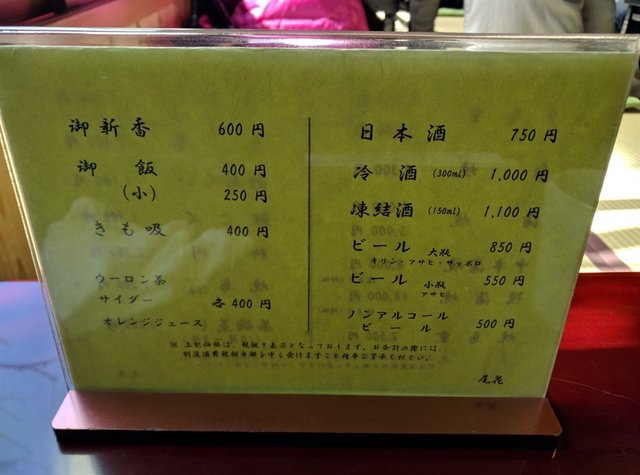 御新香 600円
御飯 400円
(小) 250円
きも吸 400円
ウーロン茶
サイダー 各400円
オレンジジュース
日本酒 750円
冷酒 (300ml) 1,000円
凍結酒 (150ml) 1,100円
ビール 大瓶 850円
キリン・アサヒ・サッポロ
ビール 小瓶 550円
アサヒ
ノンアルコール
ビール 500円
※ 上記価格は、税抜き表示となっております。お会計の際には、
別途消費税相当額を申し受けますこと何卒ご了承ください。
尾花